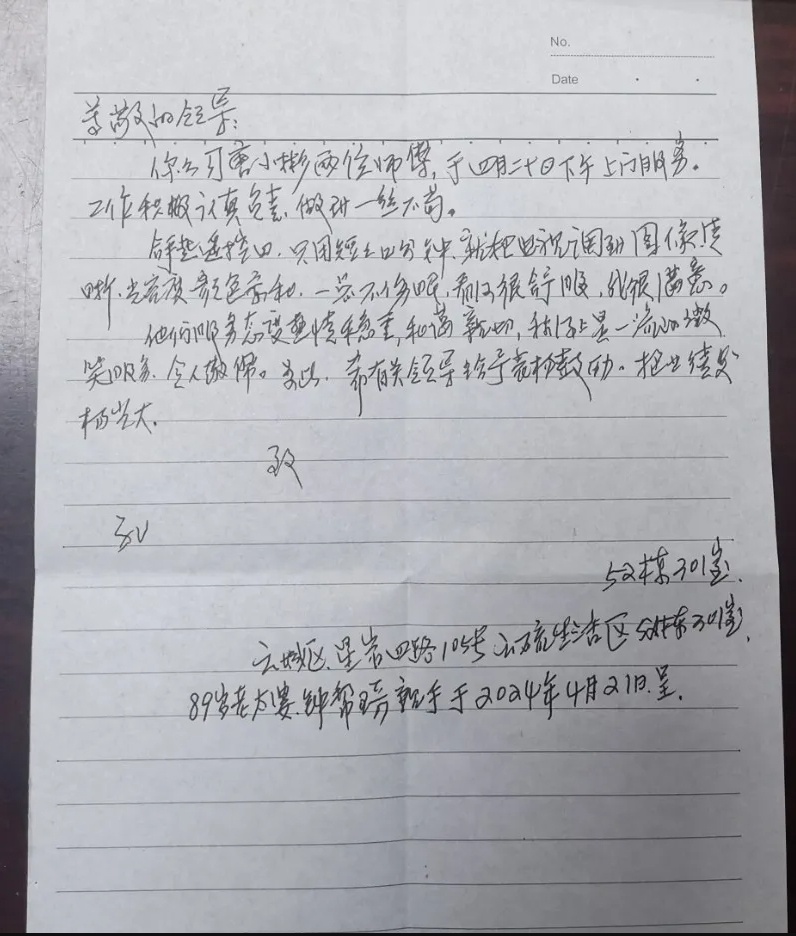 No.
Date
尊敬的领导:
你公司唐小彬两位师傅,于四月二十日下午上门服务。
工作积极认真负责,做到一丝不苟。
遥控口,只用短短四分钟,就把电视调到图像清
晰,光亮度颜色柔和,一点不伤眼,看得很舒服,我很满意。
他们服务态度热情稳重,和蔼亲切,称得上是一流的微
笑服务,令人敬佩。为此,希有关领导给予表扬鼓励。把业绩发
扬光大。
致
礼
52栋301室.
云城区.星岩四路105号云硫生活区52栋301室.
89岁老太婆.钟帮 亲手于2024年4月21日.呈.